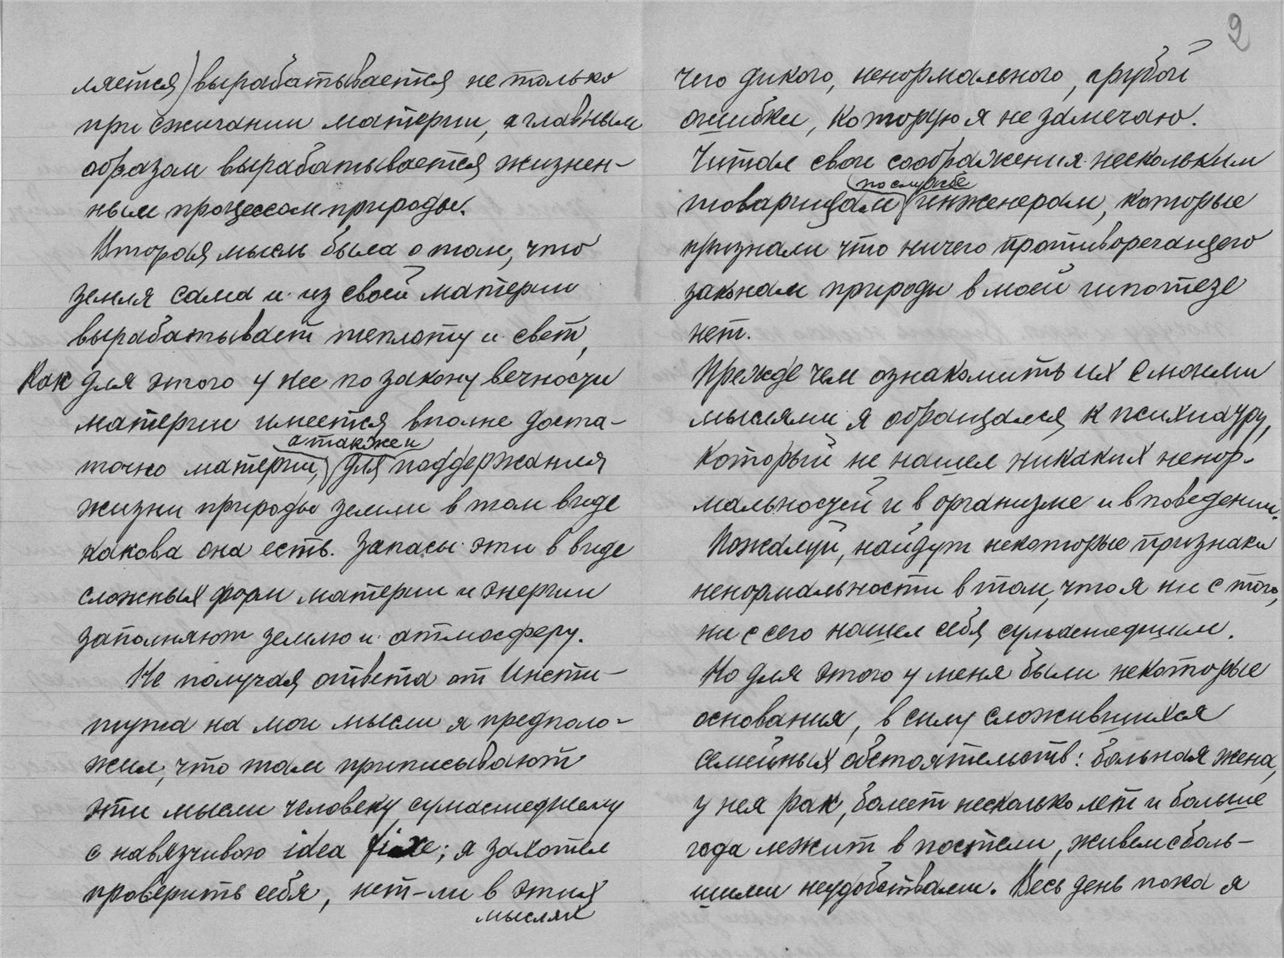 2
ляется) вырабатывается не только
при сжигании материи, а главным
образом вырабатывается жизнен-
ным процессом природы.
Вторая мысль была о том, что
земля сама и из своей материи
вырабатывает теплоту и свет,
Как для этого у нее по закону вечности
материи имеется вполне доста-
а также и
точно материи, для поддержания
жизни природы земли в том виде
какова она есть. Запасы эти в виде
сложных форм материи и энергии
заполняют землю и атмосферу.
Не получая ответа от Инсти-
тута на мои мысли я предполо-
жил, что там приписывают
эти мысли человеку сумасшедшему
с навязчивою idea fixe; я захотел
проверить себя, нет-ли в этих
мыслях
чего дикого, ненормального, грубой
ошибки, которую я не замечаю.
Читал свои соображения нескольким
по службе
товарищам инженерам, которые
признали что ничего противоречащего
законам природы в моей гипотезе
нет.
Прежде чем ознакомить их с моими
мыслями я обращался к психиатру,
который не нашел никаких ненор-
мальностей и в организме и в поведении.
Пожалуй, найдут некоторые признаки
ненормальности в том, что я ни с того,
ни с сего нашел себя сумасшедшим.
Но для этого у меня были некоторые
основания, в силу сложившихся
семейных обстоятельств: больная жена,
у нея рак, болеет несколько лет и больше
года лежит в постели, живем с боль-
шими неудобствами. Весь день пока я